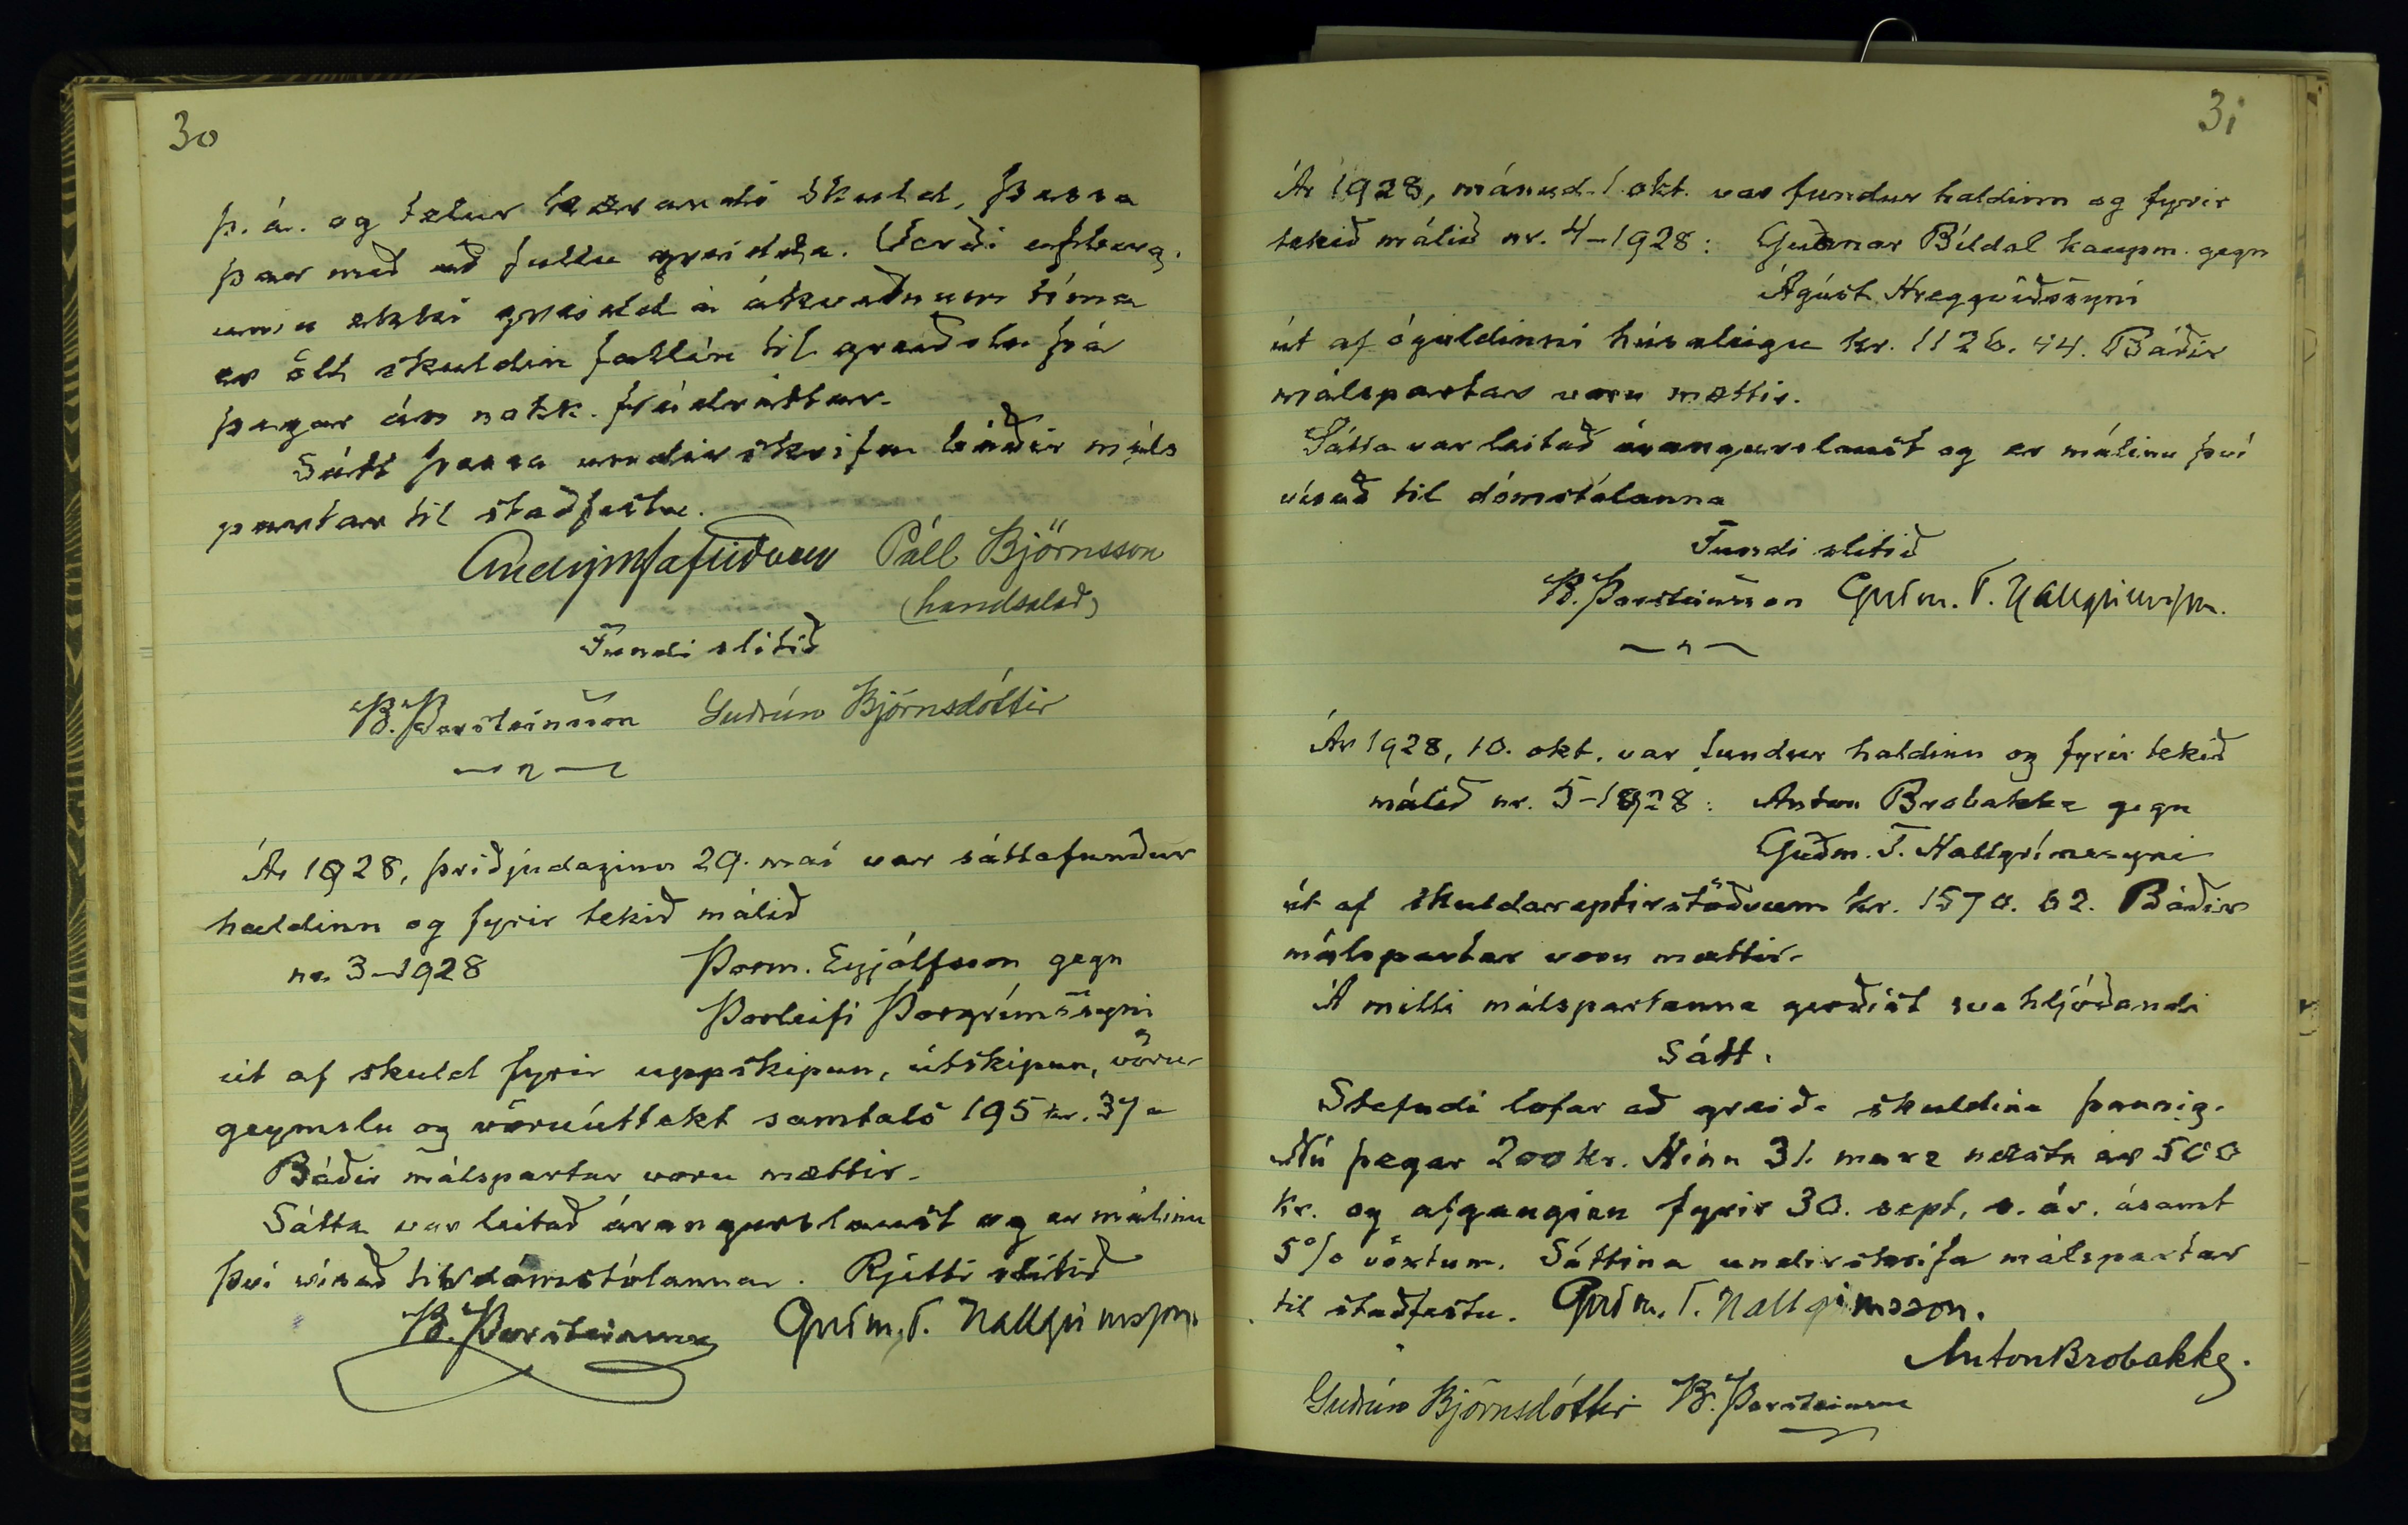 30
þ. á. og telur kærandi skuld þessa
þar með að fullu greidda. Verði afborg.
unin ekki greidd á ákveðnum tíma
er öll skuldin fallin til greiðslu þá
þegar án nokk. frádráttar.
Sátt þessa undirskrifa báðir máls
partar til staðfestu.
Páll Björnsson
(handsalað)
Fundi slitið
B. Þorsteinsson Guðrún Björnsdóttir
Ár 1928, þriðjudaginn 29. maí var sáttafundur
haldinn og fyrir tekið málið
nr. 3-1928 Þorm. Eyjólfsson gegn
Þorleifi Þorgrímssyni
út af skuld fyrir uppskipun, útskipun, vöru
geymslu og vöruúttekt samtals 195 kr. 37 a
Báðir málspartar voru mættir.
Sátta var leitað árangurslaust og er málinu
því vísað til dómstólanna. Rjetti slitið
B. Þorsteinsson Guðm. T. Hallgrímsson
31
Ár 1928, mánud. 1. okt. var fundur haldinn og fyrir
tekið málið nr. 4-1928: Gunnar Bíldal kaupm. gegn
Ágúst Hreggviðssyni
út af ógoldinni húsaleigu kr. 1126.44. Báðir
málspartar voru mættir.
Sátta var leitað árangurslaust og er málinu því
vísað til dómstólanna
Fundi slitið
B. Þorsteinsson Guðm. T. Hallgrímsson.
Ár 1928, 10. okt. var fundur haldinn og fyrir tekið
málið nr. 5-1928: Anton Brobakke gegn
Guðm. T. Hallgrímssyni
út af skuldareptirstöðvum kr. 1570.62. Báðir
málspartar voru mættir.
Á milli málspartanna gerðist svo hljóðandi
Sátt.
Stefndi lofar að greiða skuldina þannig.
Nú þegar 200 kr. Hinn 31. marz næsta ár 500
kr. og afganginn fyrir 30. sept. s. ár. ásamt
5% vöxtum. Sáttina undirskrifa málspartar
til staðfestu. Guðm. T. Hallgrímsson.
Anton Brobakke.
Guðrún Björnsdóttir B. Þorsteinsson